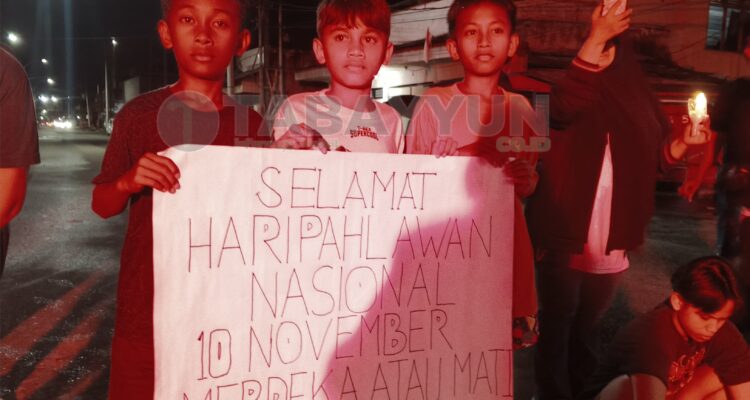 TABAYYUN
CO.ID
SUPERCOOL
SELAMAT
HARI PAHLAWAN
NASIONAL
10 NOVEMBER
MERDEKA ATAU MATI